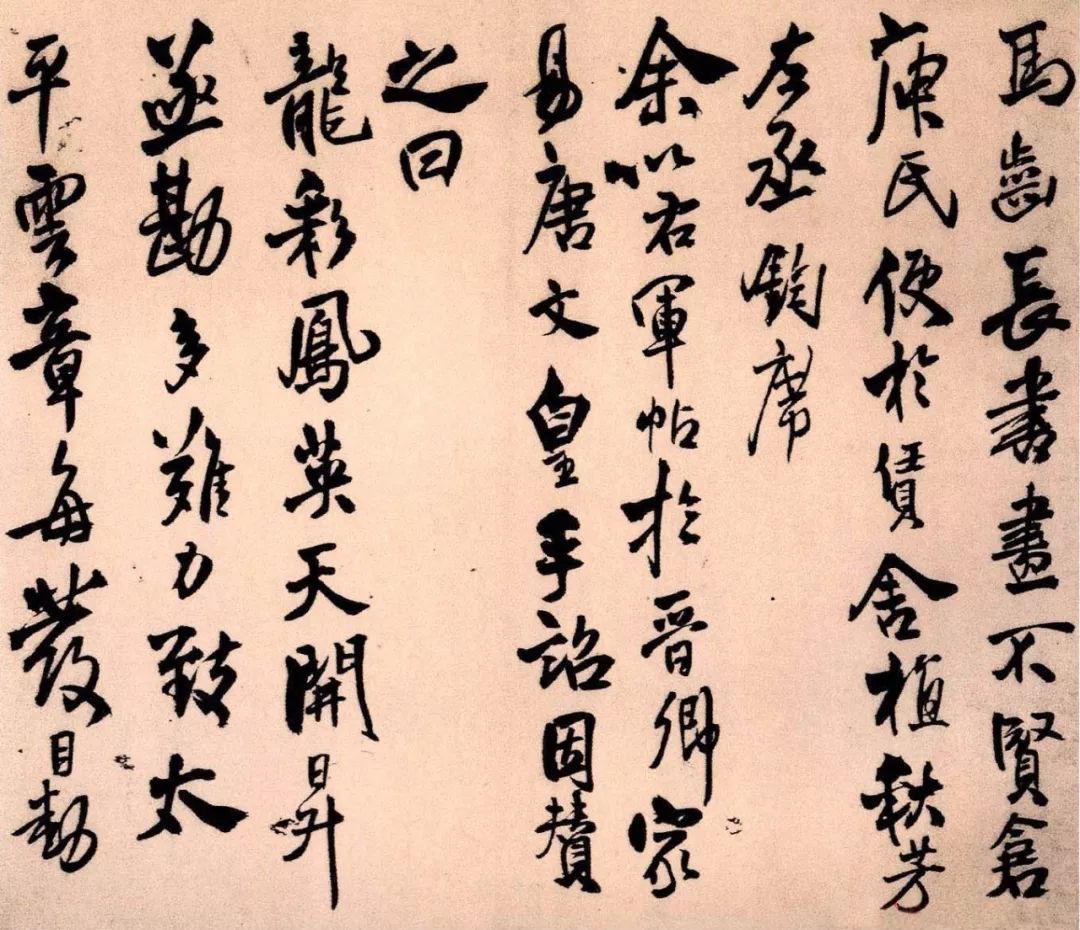 馬齒長書畫不賢倉
庾氏便於賃舍植軼芳
左丞鈞席
余以右軍帖於晉卿家
易唐文皇手詔因贊
之曰
龍彩鳳英天開日昇
亟勘多難力致太
平雲章每發目動